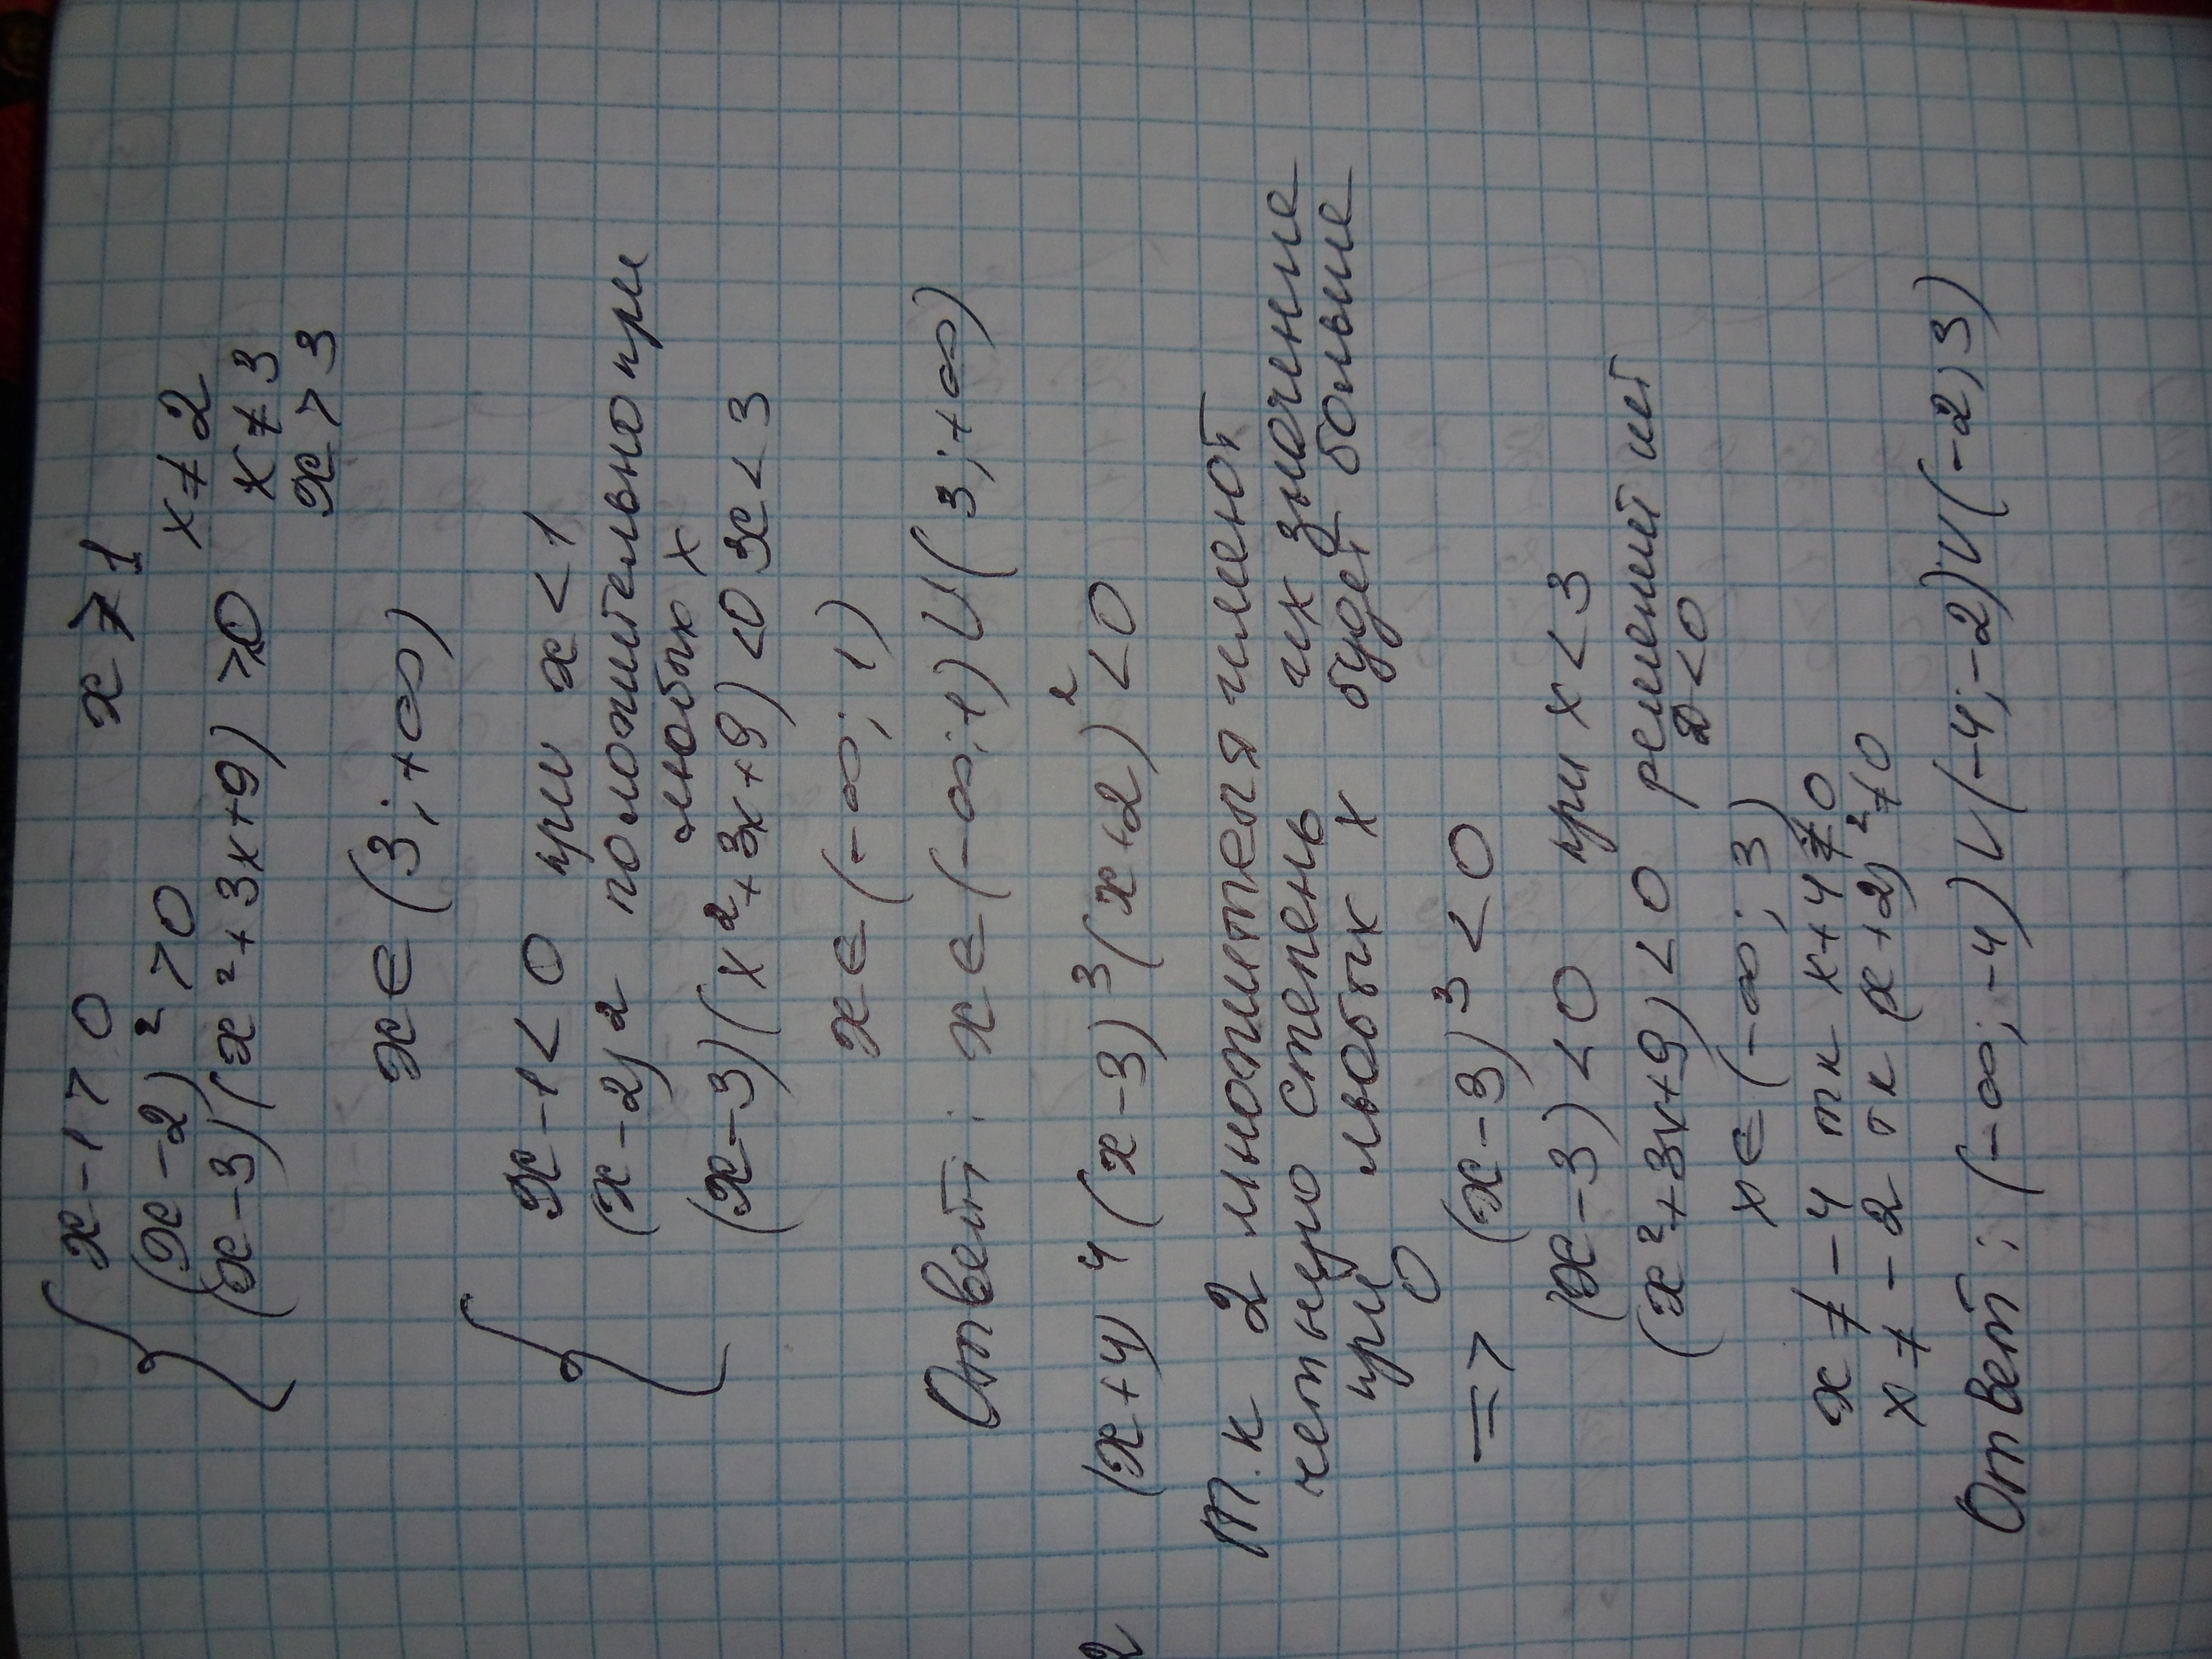 x-1>0 x>1
(x-2)²>0 x≠2
(x-3)(x²+3x+9)>0 x≠3
x>3
x∈(3;+∞)
x-1<0 при x<1
(x-2)² положительно при
любых x
(x-3)(x²+3x+9)<0 x<3
x∈(-∞;1)
Ответ: x∈(-∞;1)U(3;+∞)
2 (x+4)⁴(x-3)³(x+2)²<0
Т.к 2 множителя имеют
четную степень их значение
при любых x будет больше
0
=> (x-3)³<0
(x-3)<0 при x<3
(x²+3x+9)<0 решений нет
D<0
x∈(-∞;3)
x≠-4 тк x+4≠0
x≠-2 тк (x+2)²≠0
Ответ: (-∞;-4)U(-4;-2)U(-2;3)